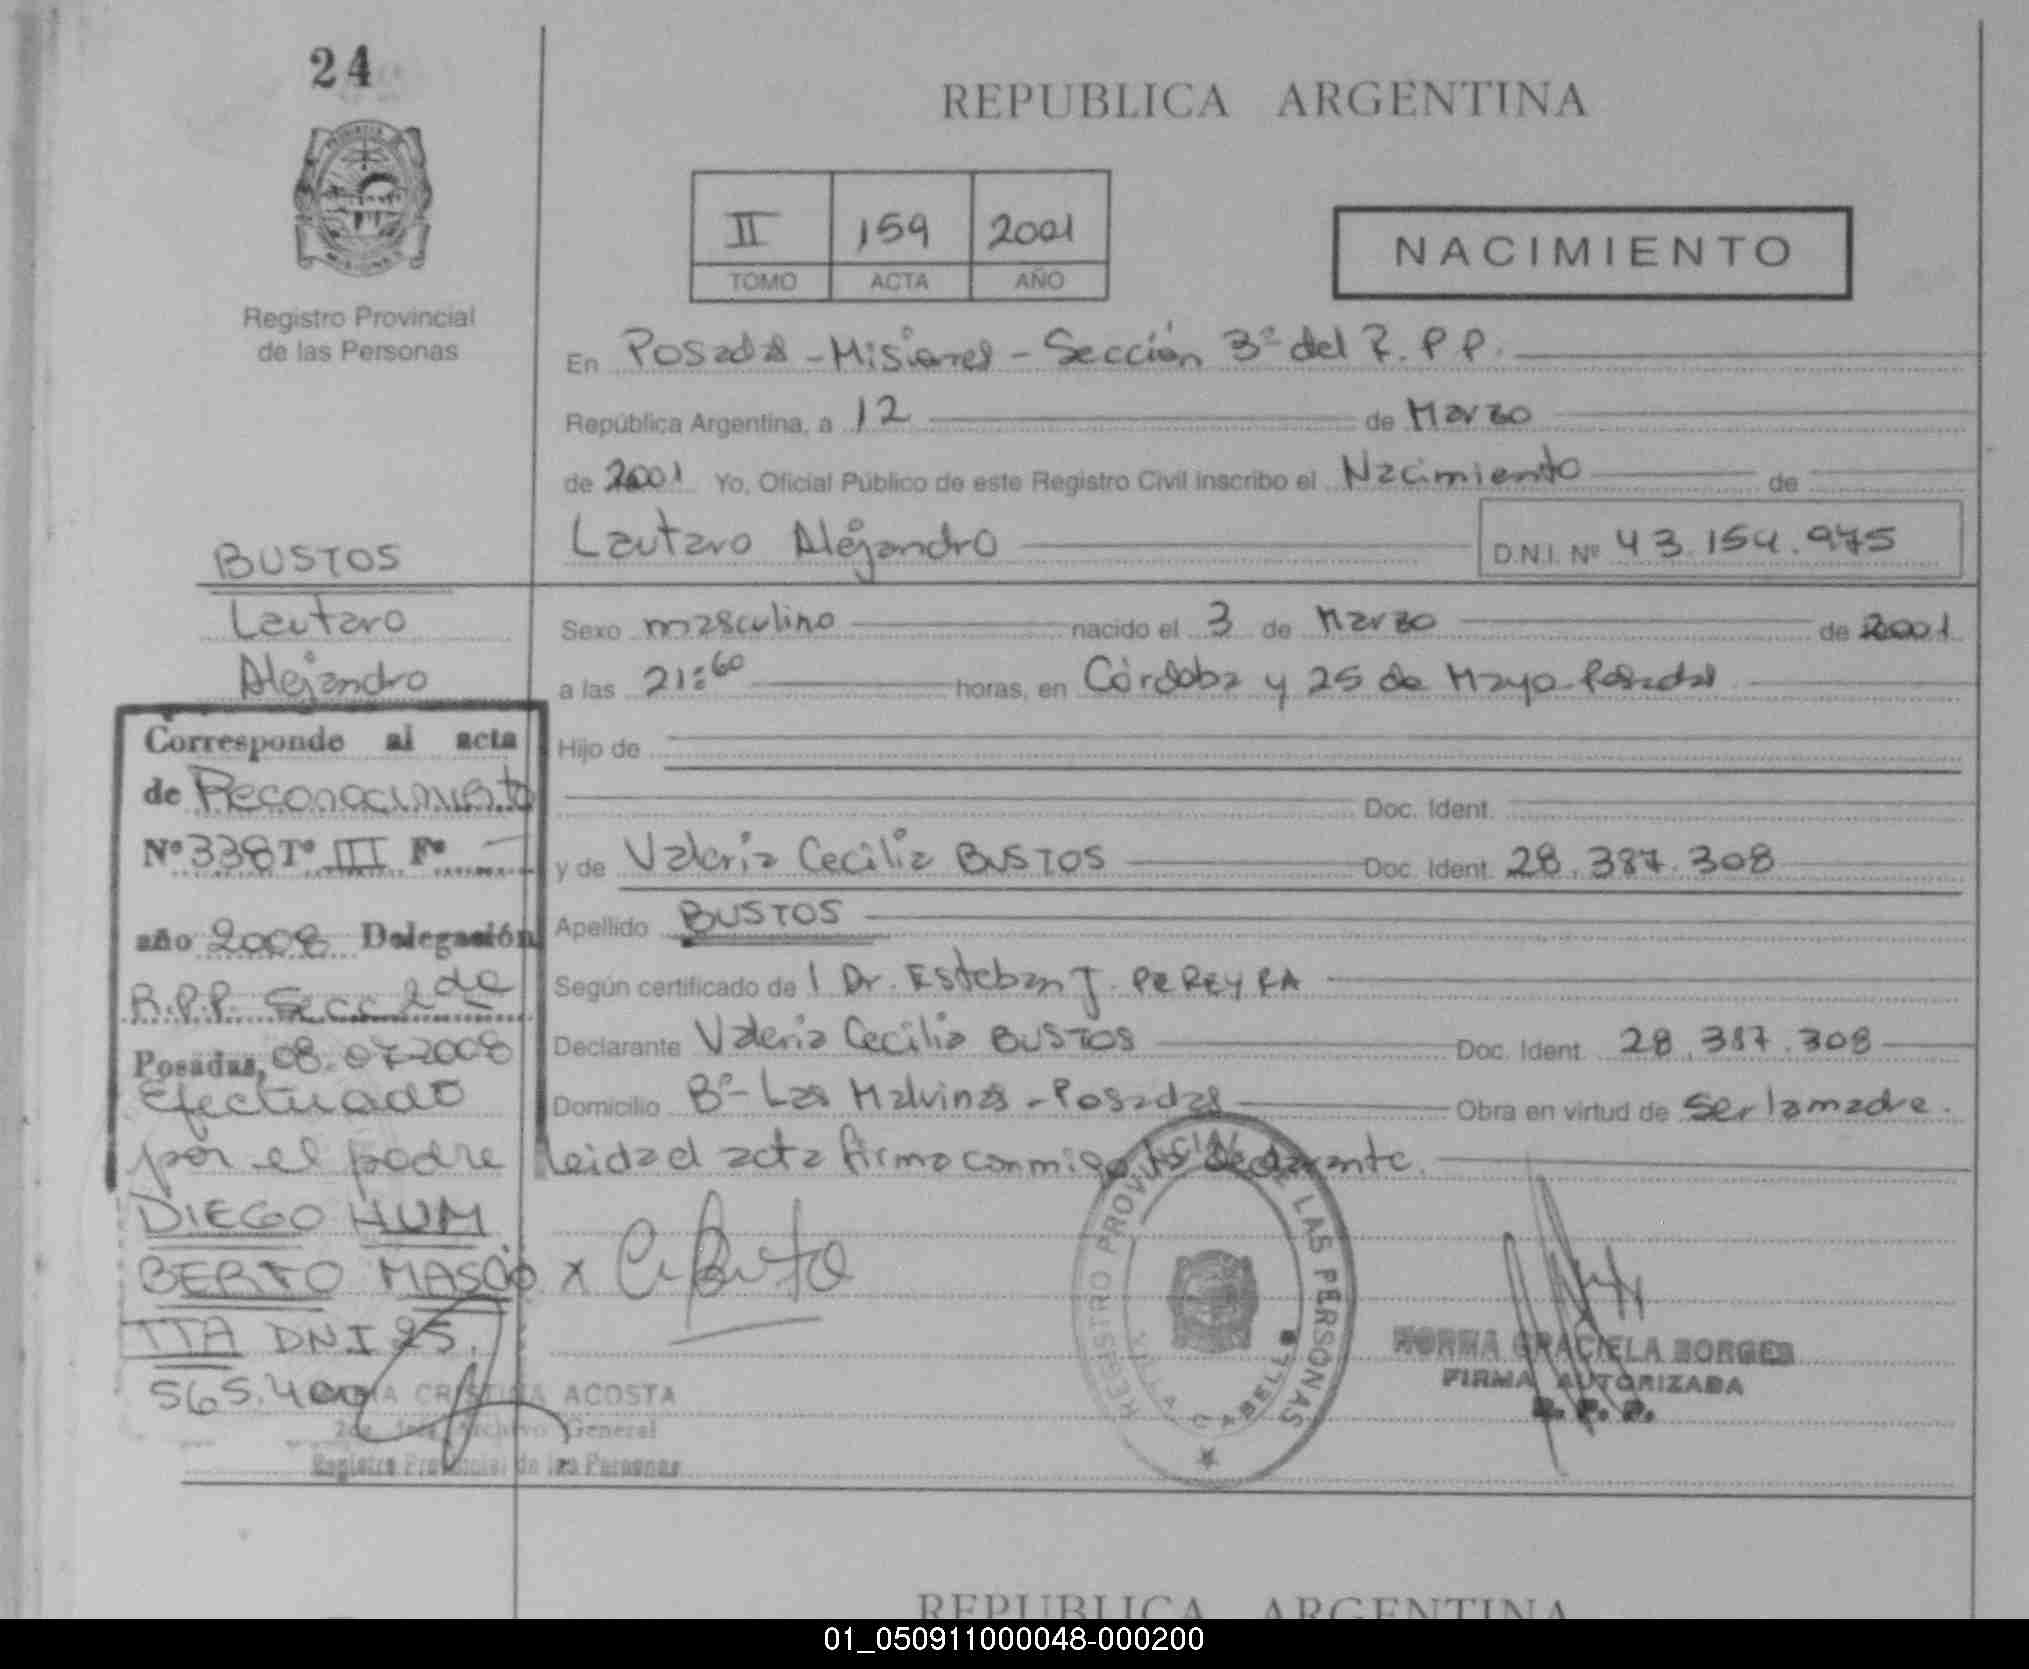 24
REPUBLICA ARGENTINA
II 159 2001
TOMO ACTA AÑO
NACIMIENTO
Registro Provincial
de las Personas
En Posadas - Misiones - Sección 3ª del R.P.P.
República Argentina, a 12 de Marzo
de 2001 Yo, Oficial Público de este Registro Civil inscribo el Nacimiento de
Lautaro Alejandro D.N.I. Nº 43.154.975
BUSTOS
Lautaro
Alejandro
Sexo masculino nacido el 3 de Marzo de 2001
a las 21:60 horas, en Córdoba y 25 de Mayo Posadas
Hijo de
Doc. Ident.
y de Valeria Cecilia BUSTOS Doc. Ident. 28.387.308
Apellido BUSTOS
Según certificado de l Dr. Esteban J. PEREYRA
Declarante Valeria Cecilia BUSTOS Doc. Ident. 28.387.308
Domicilio Bº Las Malvinas - Posadas Obra en virtud de Ser la madre.
Leida el acta firma conmigo la declarante.
Corresponde al acta
de Reconocimiento
Nº 338 Tº III Fº -
año 2008 Delegación
R.P.P. Secc 2da
Posadas, 08-07-2008
Efectuado
por el padre
DIEGO HUM
BERTO MASCIO
TTA DNI 25.
565.400
CRISTINA ACOSTA
Archivo General
Registro Provincial de las Personas
x
REGISTRO PROVINCIAL DE LAS PERSONAS
VILLA CABELLO
NORMA GRACIELA BORGES
FIRMA AUTORIZADA
R. P. P.
REPUBLICA ARGENTINA
01_050911000048-000200